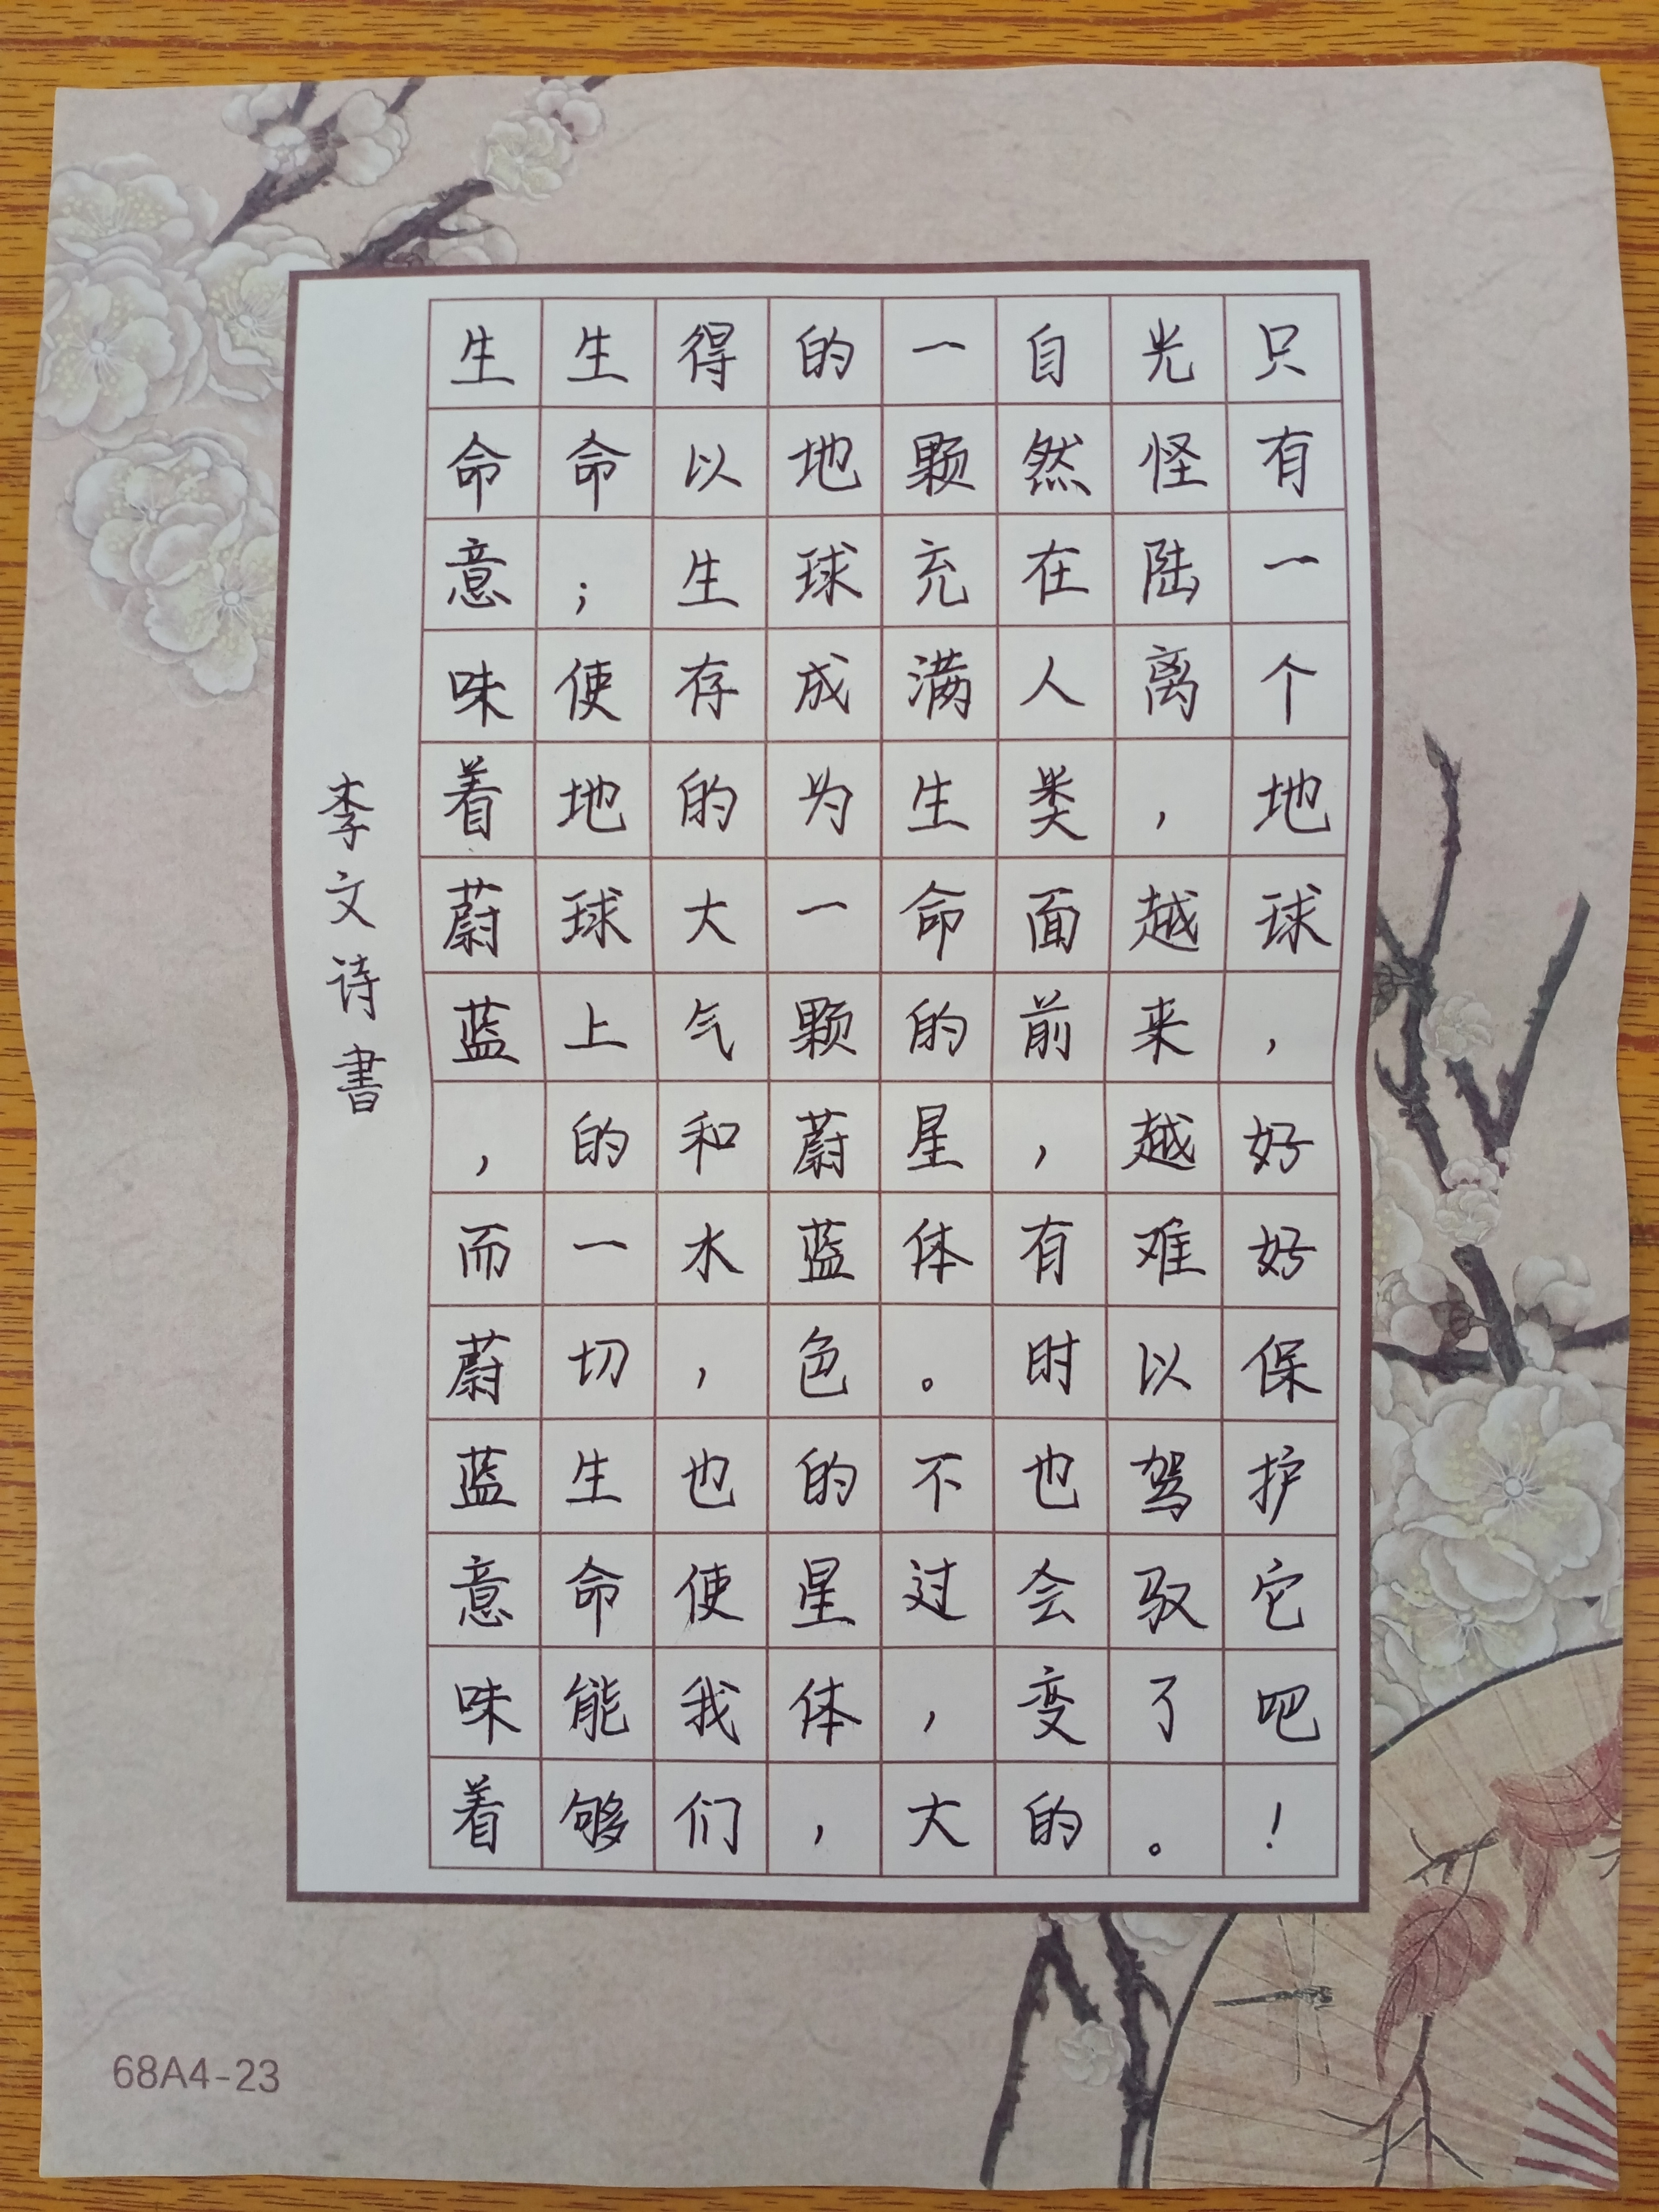 生命意味着蔚蓝，而蔚蓝意味着
生命；使地球上的一切生命能够
得以生存的大气和水，也使我们
的地球成为一颗蔚蓝色的星体，
一颗充满生命的星体。不过，大
自然在人类面前，有时也会变的
光怪陆离，越来越难以驾驭了。
只有一个地球，好好保护它吧！
李文诗書
68A4-23